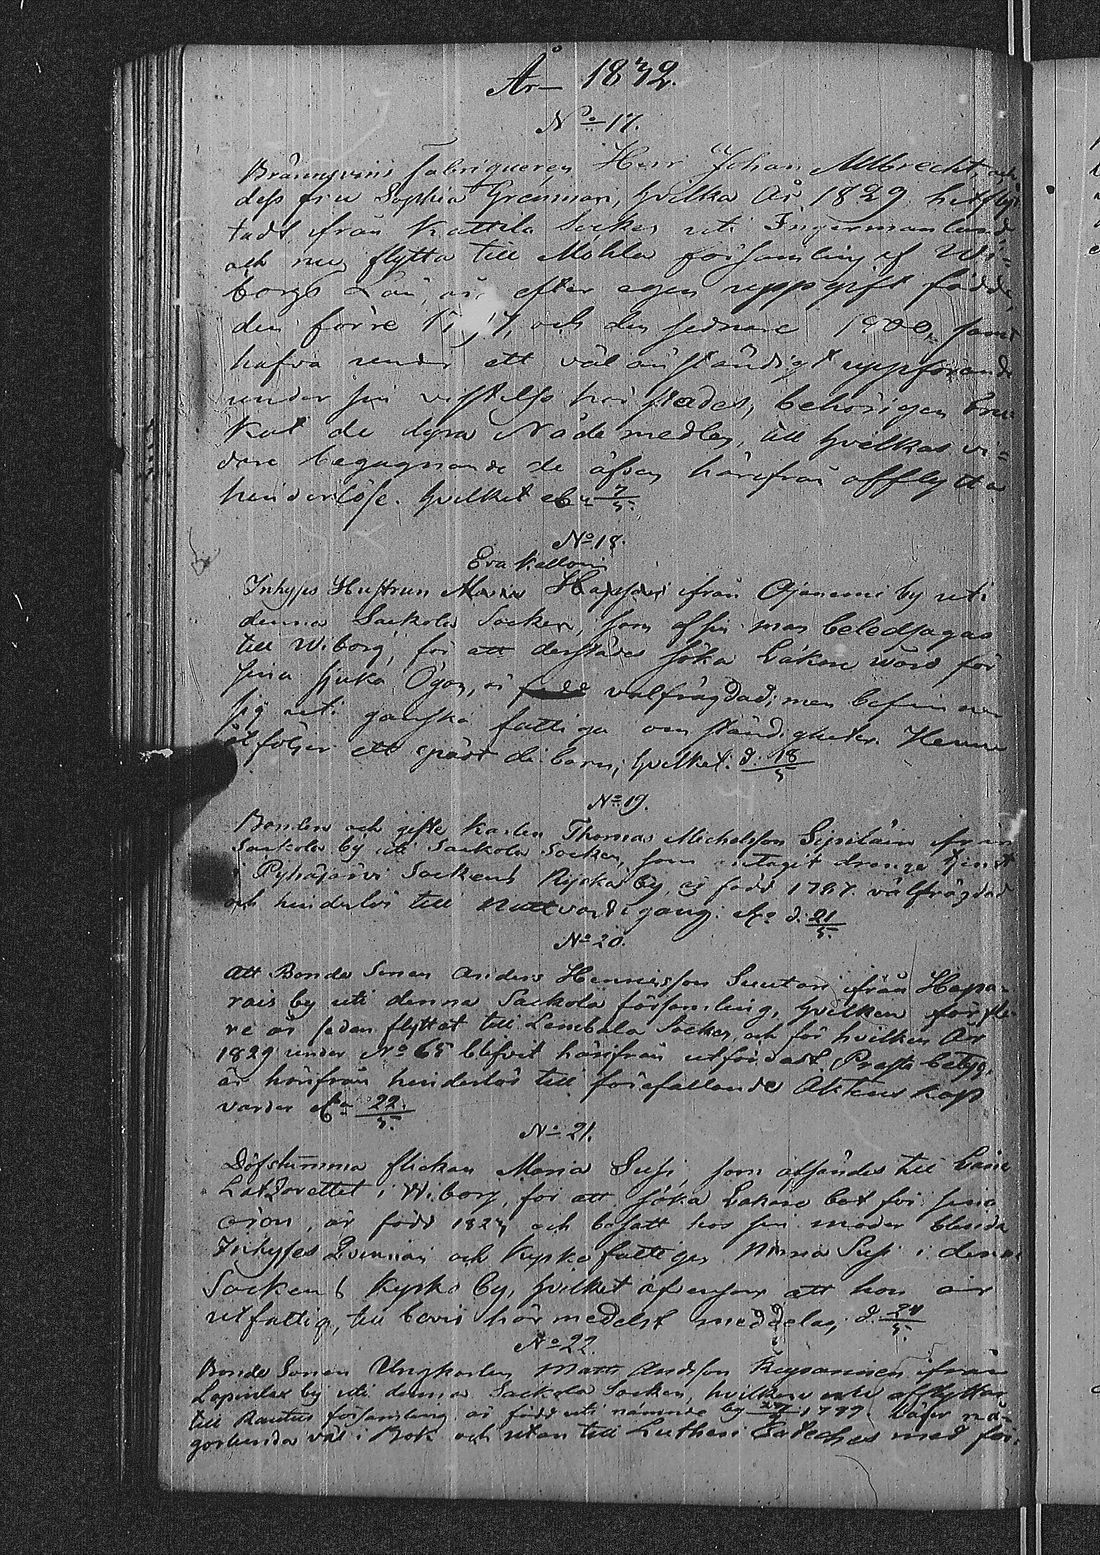 År 1832.
No 17.
Bränvins fabriqueren Herr Johan Albrecht, och
dess fru Sophia Grenman, hvilka År 1829 hitflyt
tadt från Kattila Socken uti Ingermanland,
och nu flytta till Mohla församling af Wi=
borgs Län, är efter egen uppgift födde,
den förre 17 och den sednare 1800, samt
hafva under ett väl anständigt uppförande
under sin vistelse här städes, behörigen bru
kat de dyra Nådemedlen, till hvilkas vi=
dare begagnande de äfven härifrån afflytta
hinderlöse. hvilket 7/5.
No 18.
Eva
Inhyses Hustrun Maria från by uti
denna Sackola Socken, som af sin man beledsagas
till Wiborg, för att derstädes söka Läkare wård för
sina sjuka Ögon, är välfrägdad; men befinner
sig uti ganska fattiga omständigheter. Henne
åtföljer ett spädt di barn; hvilket. d. 18/5
No 19.
Bonden och gifte Karlen Thomas Michelsson från
Sackola by uti Sackola Socken, som antagit dränge tjenst
i Pyhäjärvi Sockens by, är född 1787. välfrägdad
och hinderlös till Nattvardsgång. d. 21/5.
No 20.
Att Bonde Sonen Anders Hennesson från Hapa=
rais by uti denna Sackola församling, hvilken för fle=
re år sedan flyttat till Lembala Socken, och för hvilken År
1829 under No 65 blifvit härifrån utfärdadt Preste betyg,
är härifrån hinderlös till förefallande Äktenskap
varder 22/5.
No 21.
Döfstumma flickan Maria Susi, som afsändes till Läns
Latzarettet i Wiborg, för att söka Läkare bot för sina
ögon, är född 182 och besatt hos sin moder blinda
Inhyses Qvinnan och Kyrkofattiga Susi i denna
Sockens by, hvilket äfvensom att hon är
utfattig, till bevis härmedelst meddelas, d. 24/5.
No 22.
Bonde Sonen Ungkarlen Matts Andsson från
by uti denna Sackola Socken, hvilken afflyttar
till Rautus församling är född uti nämnde by 1799 Läser nå=
gorlunda väl i Bok och utan till Lutheri Cateches med för=